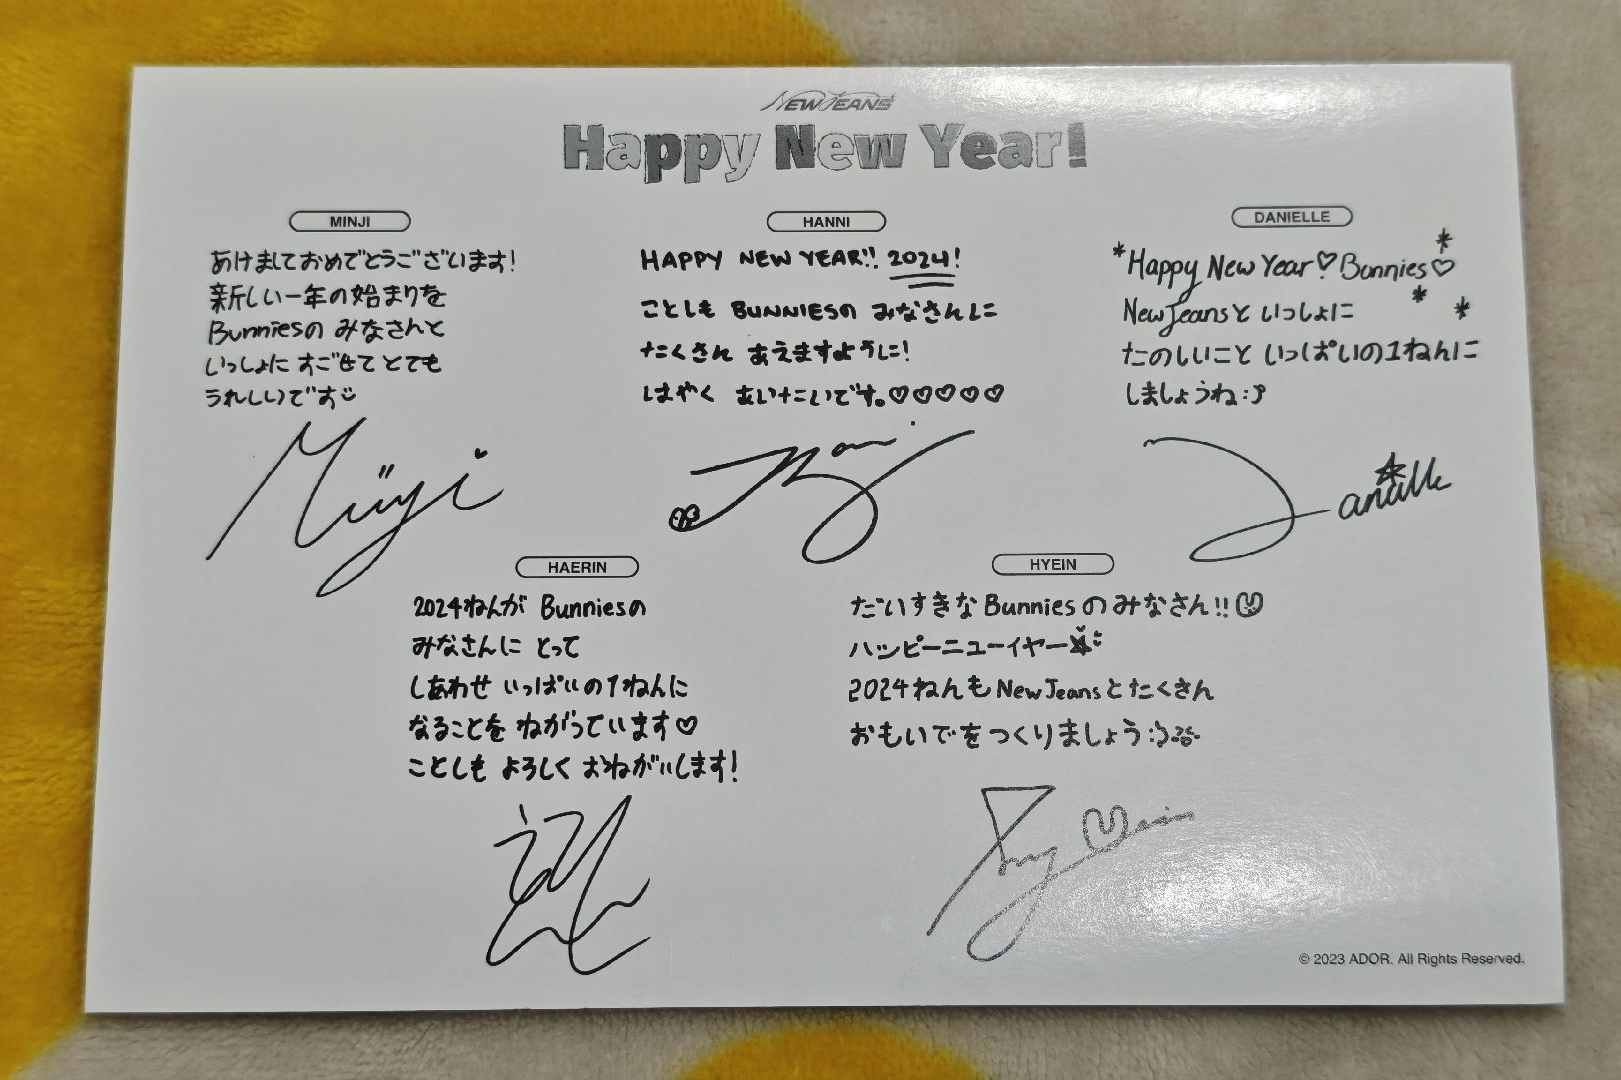 NEWJEANS
Happy New Year!
MINJI
あけましておめでとうございます!
新しい一年の始まりを
Bunniesの みなさんと
いっしょに すごせて とても
うれしいです
Minji
HANNI
HAPPY NEW YEAR!! 2024!
ことしも BUNNIESの みなさんに
たくさん あえますように!
はやく あいたいです。♡♡♡♡♡
DANIELLE
*Happy New Year♡Bunnies♡
NewJeansと いっしょに
たのしいこと いっぱいの1ねんに
しましょうね:)
Danielle
HAERIN
2024ねんが Bunniesの
みなさんに とって
しあわせ いっぱいの1ねんに
なることを ねがっています♡
ことしも よろしく おねがいします!
HYEIN
だいすきなBunniesのみなさん!!
ハッピーニューイヤー
2024ねんもNewJeansとたくさん
おもいでをつくりましょう:)
© 2023 ADOR. All Rights Reserved.